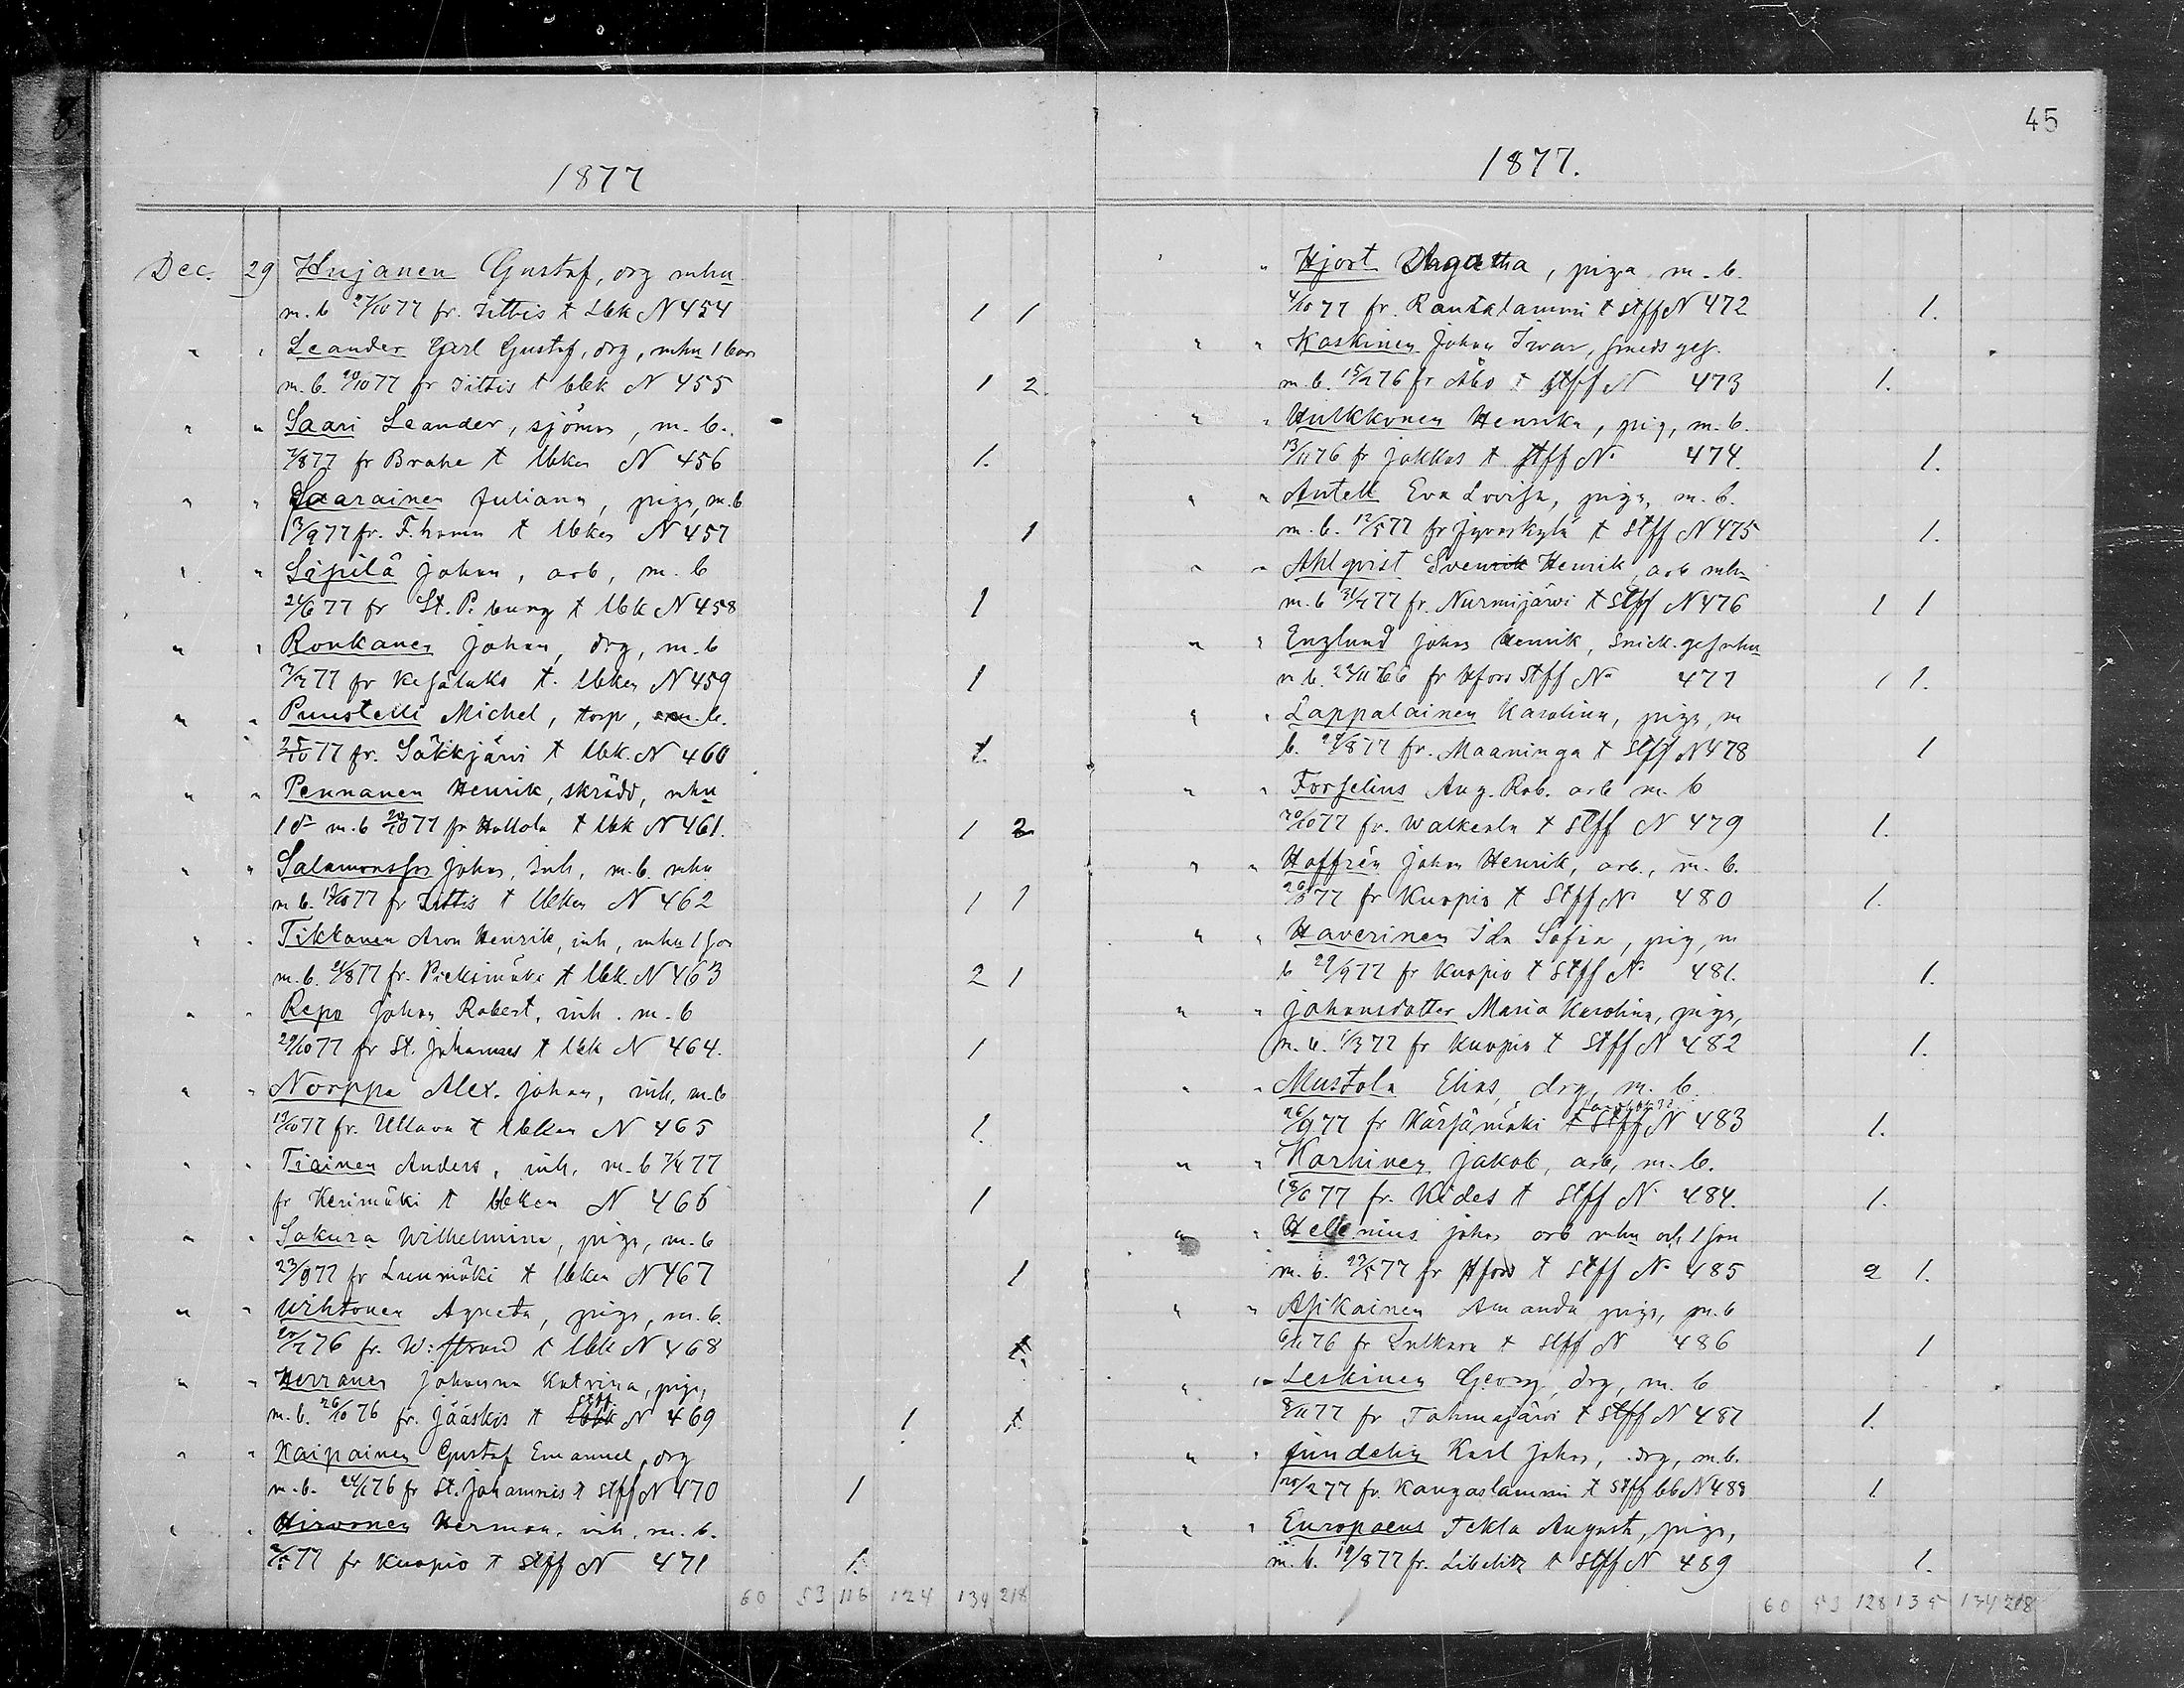 45
1877
Dec. 29 Hujanen Gustaf, drg mhu
m. b 27/10 77 fr. Jittis t lbk N 454 1 1
" " Leander Carl Gustaf, drg, mhu 1 barn
m. b. 29/10 77 fr Jittis t lbk N 455 1 2
" " Saari Leander, sjöman, m. b.
7/8 77 fr Brahe t lbkn N 456 1.
" " Saarainen Juliana, piga, m. b
13/9 77 fr. F.hamn t lbkn N 457 1
" " Sipilä Johan, arb, m. b
21/6 77 fr St. P. burg t lbk N 458 1
" " Ronkanen Johan, drg, m. b
77 fr Kesälaks t. lbkn N 459 1
" " Puustelli Michel, torp, m. b.
25/10 77 fr. Säkkjärvi t lbk. N 460 1.
" " Pennanen Henrik, skrädd, mhu
1 dr m. b 29/10 77 fr Hollola t lbk N 461. 1 2
" " Salamonsson Johan, inh, m. b. mhu
m b. 77 fr Jittis t lbkn N 462 1 1
" " Tikkanen Aron Henrik, inh, mhu 1 son
m. b. 77 fr. Pieksimäki t lbk. N 463 2 1
" " Repo Johan Robert, inh. m. b
29/10 77 fr St. Johannes t lbk N 464. 1
" " Norppa Alex. Johan, inh, m. b
77 fr. Ullava t lbkn N 465 1.
" " Tiainen Anders, inh, m. b 77
fr Kerimäki t lbkn N 466 1
" " Sakura Wilhelmina, piga, m. b
23/9 77 fr Luumäki t lbkn N 467 1
" " Wihtonen Agneta, piga, m. b.
76 fr. W: strand t lbk N 468 1.
" " Herranen Johanna Katrina, piga,
m. b. 26/10 76 fr. Jääskis t stff N 469 1 1
" " Kaipainen Gustaf Emanuel, drg
m. b. 76 fr St. Johannis t stff N 470 1
" " Hirvonen Herman, inh, m. b.
77 fr Kuopio t stff N 471 1.
60 53 116 124 134 218
1877.
" Hjort Agatha, piga m. b.
4/10 77 fr. Rautalammi t stff N 472 1.
" " Koskinen Johan Iwar, smeds ges.
m. b. 76 fr Åbo t stff N 473 1.
" " Hulkkonen Henrika, pig, m. b.
13/11 76 fr Jokkas t stff No 474. 1.
" " Antell Eva Lovisa, piga, m. b.
m. b. 12/5 77 fr Jyväskylä t stff N 475 1.
" " Ahlqvist Sven Henrik, arb mhu
m. b 77 fr. Nurmijärvi t stff N 476 1 1
" " Englund Johan Henrik, snick. ges mhu
m b. 23/11 66 fr Hfors stff No 477 1 1.
" " Lappalainen Karolina, piga, m
b. 29/8 77 fr. Maaninga t stff N 478 1
" " Forselius Aug. Rob. arb m. b
77 fr. Walkeala t stff N 479 1.
" " Hoffrén Johan Henrik, arb., m. b.
77 fr Kuopio t Stff No 480 1.
" " Haverinen Ida Sofia, pig, m
b 29/9 77 fr Kuopio t Stff No 481. 1.
" " Johansdotter Maria Karolina, piga,
m. b. 77 fr Kuopio t Stff N 482 1.
" " Mustola Elias, drg, m. b.
26/9 77 fr Kärsämäki t stff N 483 1.
" " Karhinen Jakob, arb, m. b.
77 fr. Kides t stff No 484. 1.
" " Hellenius Johan arb mhu och 1 son
m. b. 23/5 77 fr Hfors t stff No 485 2 1.
" " Asikainen Amanda piga, m. b
76 fr Sulkava t stff N 486 1
" " Leskinen Georg, drg, m. b
8/11 77 fr Tohmajärvi t stff N 487 1.
" " Sundelin Karl Johan, drg, m. b.
77 fr. Kangaslammi t stff bb N 488 1.
" " Europaeus Tekla Augusta, piga,
m. b. 19/8 77 fr. Libelitz t stff N 489 1.
60 53 128 135 134 218